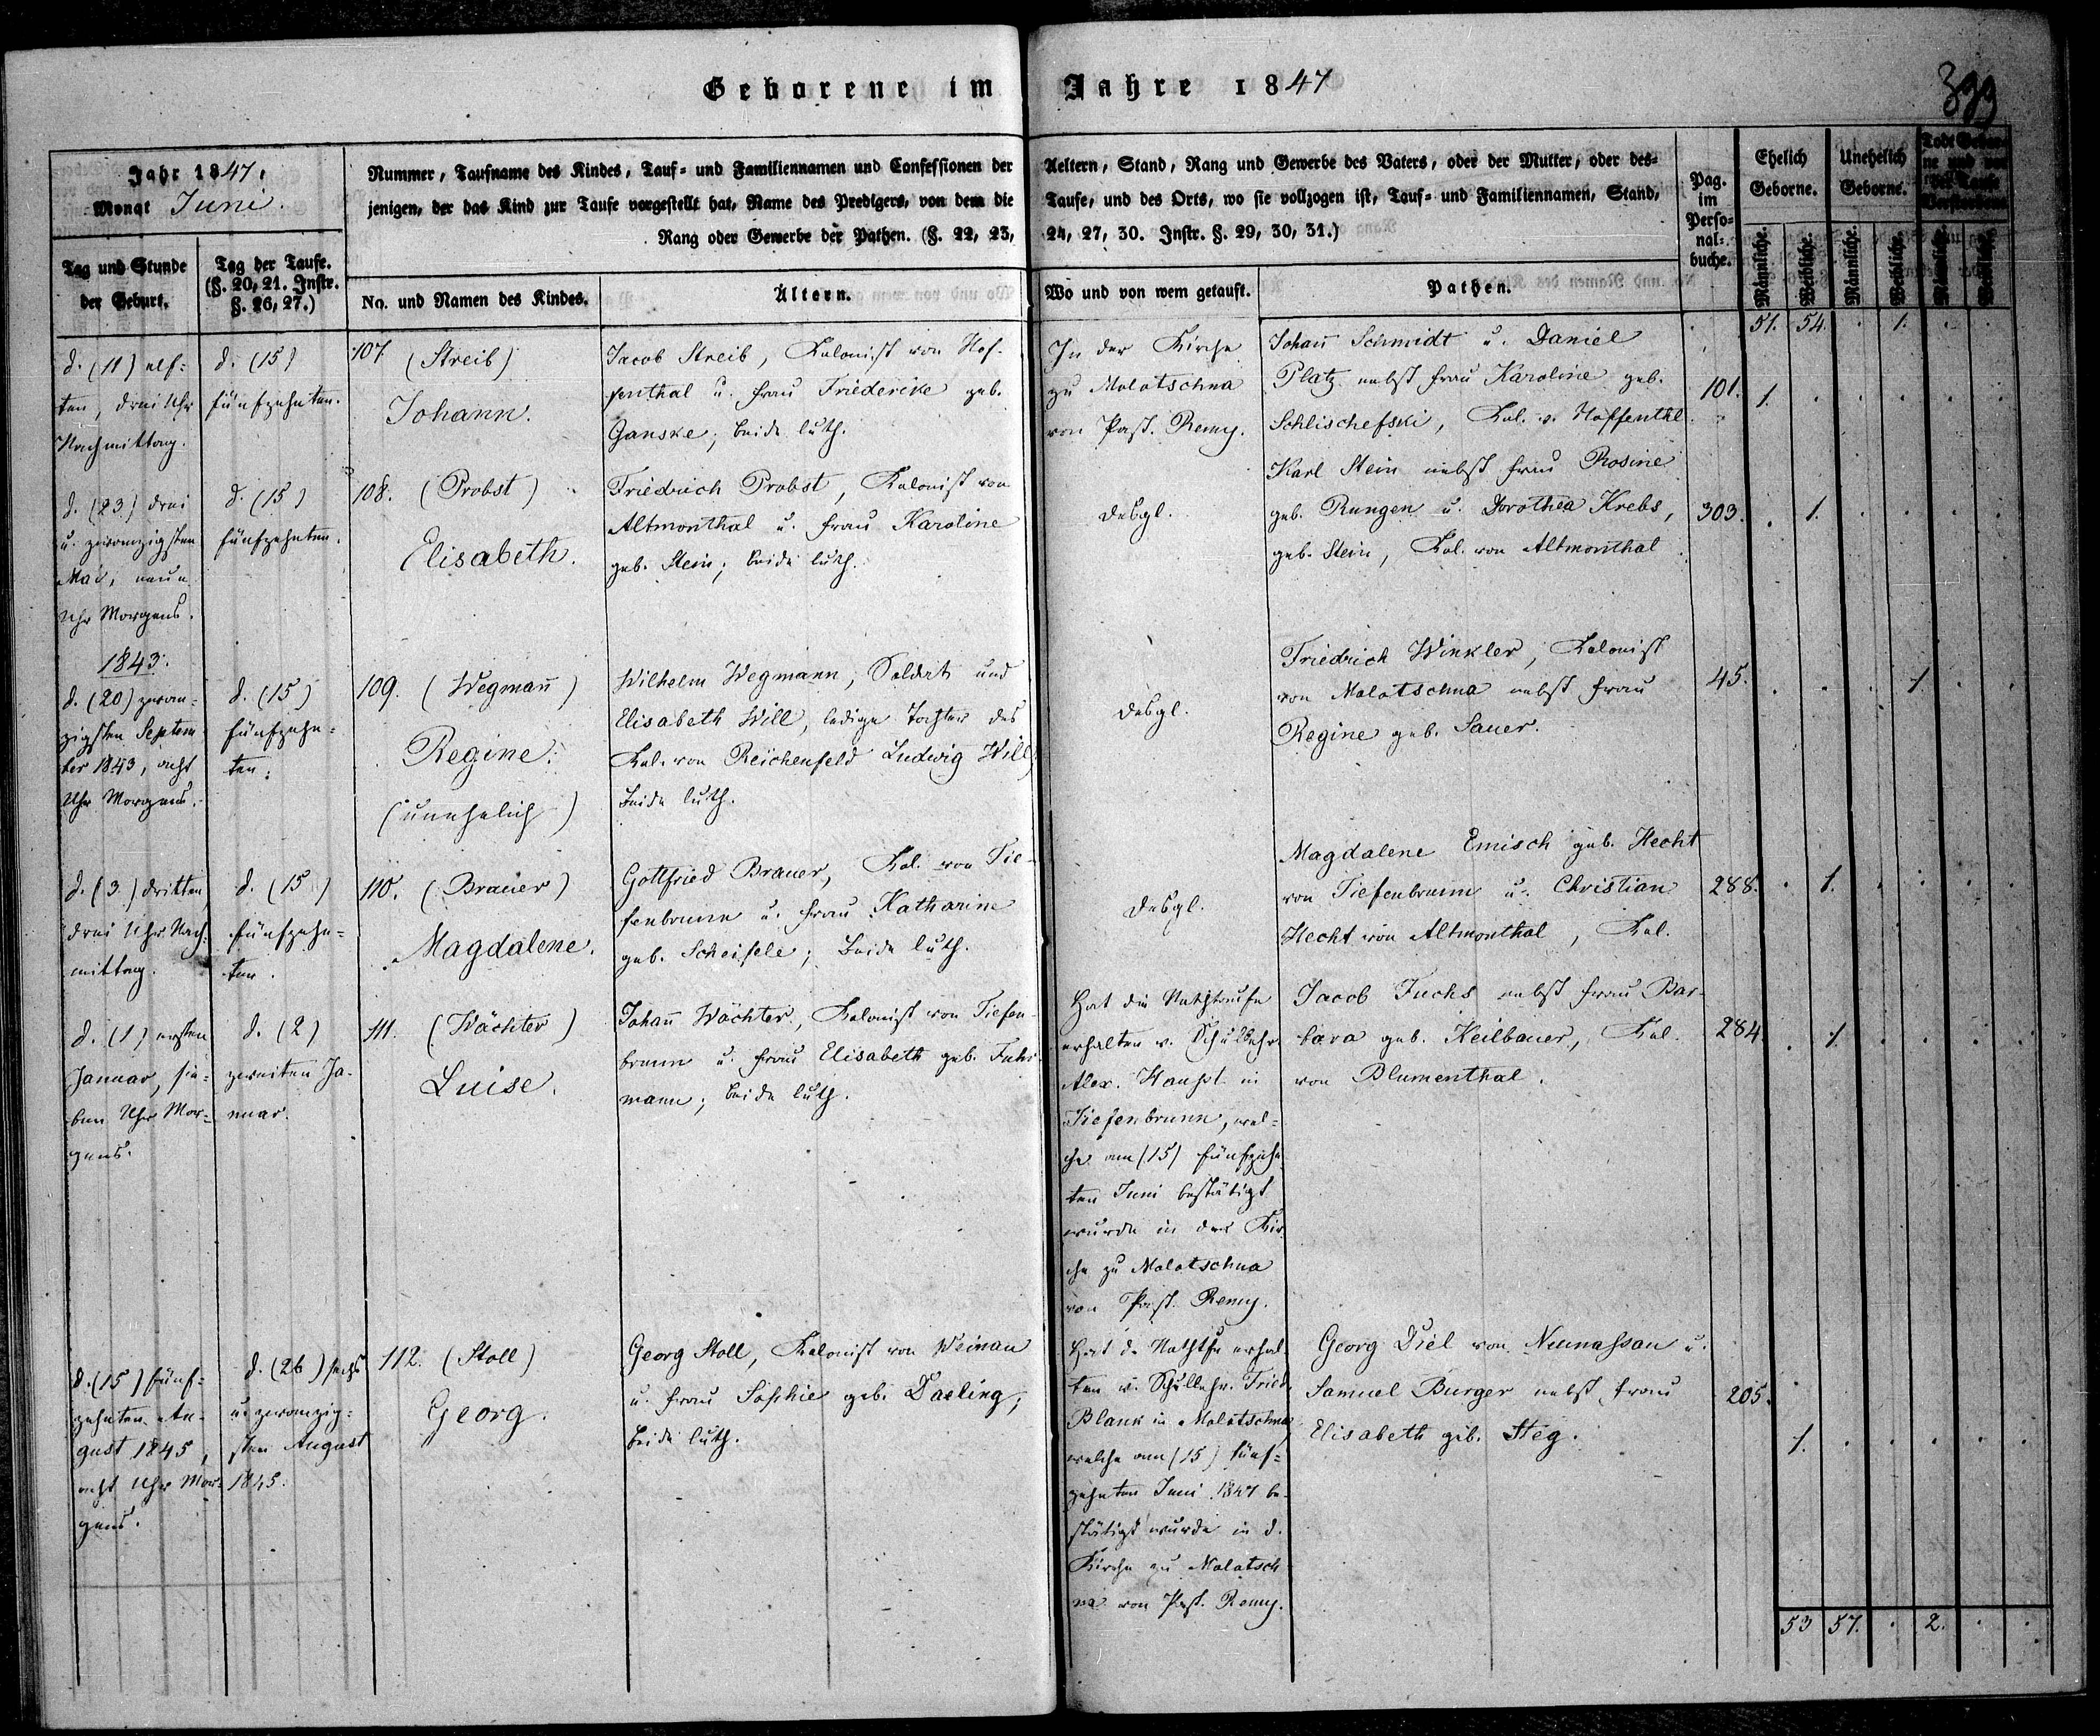 Geborene im Jahre 1847
Jahr 1847.
Monat Juni.
Nummer, Taufname des Kindes, Tauf- und Familiennamen und Confessionen der Aeltern, Stand, Rang und Gewerbe des Vaters, oder der Mutter, oder des-
jenigen, der das Kind zur Taufe vorgestellt hat, Name des Predigers, von dem die Taufe, und des Orts, wo sie vollzogen ist, Tauf- und Familiennamen, Stand,
Rang oder Gewerbe der Pathen. (§. 22, 23, 24, 27, 30. Instr. §. 29, 30, 31.)
Pag.
im
Perso-
nal-
buche.
Ehelich
Geborne.
Unehelich
Geborne.
Männliche.
Weibliche.
Männliche.
Weibliche.
Männliche.
Tag und Stunde
der Geburt.
Tag der Taufe.
(§. 20, 21. Instr.
§. 26, 27.)
No. und Namen des Kindes.
Ältern.
Wo und von wem getauft.
Pathen.
51. 54. . 1. . .
d. (11) elf-
ten, drei Uhr
Nachmittag.
d. (15)
fünfzehnten.
107. (Streib)
Johann.
Jacob Streib, Kolonist von Hof-
fenthal u. Frau Friedericke geb.
Ganske; beide luth.
In der Kirche
zu Molotschna
von Past. Remy.
Johañ Schmidt u. Daniel
Platz nebst Frau Karoline geb.
Schlischefski, Kol. v. Hoffenthl.
101. 1. . . . . .
d. (23) drei
u. zwanzigsten
Mai, neun
Uhr Morgens.
d. (15)
fünfzehnten.
108. (Probst)
Elisabeth.
Friedrich Probst, Kolonist von
Altmonthal u. Frau Karoline
geb. Stein; beide luth.
desgl.
Karl Stein nebst Frau Rosine
geb. Rungen u. Dorothea Krebs,
geb. Stein, Kol. von Altmonthal.
303. . 1. . . . .
1843.
d. (20) zwan-
zigsten Septem-
ber 1843, acht
Uhr Morgens.
d. (15)
fünfzehn-
ten.
109. (Wegmañ)
Regine.
(unehelich)
Wilhelm Wegmann, Soldat und
Elisabeth Will, ledige Tochter des
Kol. von Reichenfeld Ludwig Will,
beide luth.
desgl.
Friedrich Winkler, Kolonist
von Molotschna nebst Frau
Regine geb. Sauer.
45. . . . 1 . .
d. (3) dritten,
drei Uhr Nach-
mittag.
d. (15)
fünfzehn-
ten.
110. (Brauer)
Magdalene.
Gottfried Brauer, Kol. von Tie-
fenbrunn u. Frau Katharine
geb. Scheifele; beide luth.
desgl.
Magdalene Emisch geb. Hecht
von Tiefenbrunn u. Christian
Hecht von Altmonthal, Kol.
288. . 1. . . . .
d. (1) ersten
Januar, sie-
ben Uhr Mor-
gens.
d. (2)
zweiten Ja-
nuar.
111. (Wächter)
Luise.
Johañ Wächter, Kolonist von Tiefen-
brunn u. Frau Elisabeth geb. Fuhr-
mann; beide luth.
Hat die Nothtaufe
erhalten v. Schullehr.
Alex. Haupt in
Tiefenbrunn, wel-
che am (15) fünfzehn
ten Juni bestätigt
wurde in der Kir-
che zu Molotschna
von Past. Remy.
Jacob Fuchs nebst Frau Bar-
bara geb. Keilbauer, Kol.
von Blumenthal.
284 . 1. . . . .
d. (15) fünf-
zehnten Au-
gust 1845,
acht Uhr Mor-
gens.
d. (26) sechs
u. zwanzig-
sten August
1845.
112. (Stoll)
Georg.
Georg Stoll, Kolonist von Weinau
u. Frau Sophie geb. Daeling;
beide luth.
Hat d. Nothtfe erhal-
ten v. Schullehr. Fried.
Blank in Molotschna,
welche am (15) fünf-
zehnten Juni 1847 be-
stätigt wurde in d.
Kirche zu Molotsch-
na von Past. Remy.
Georg Diel von Neunassau u.
Samuel Burger nebst Frau
Elisabeth geb. Steg.
205.
1. . . . . .
53 57. . 2. . .